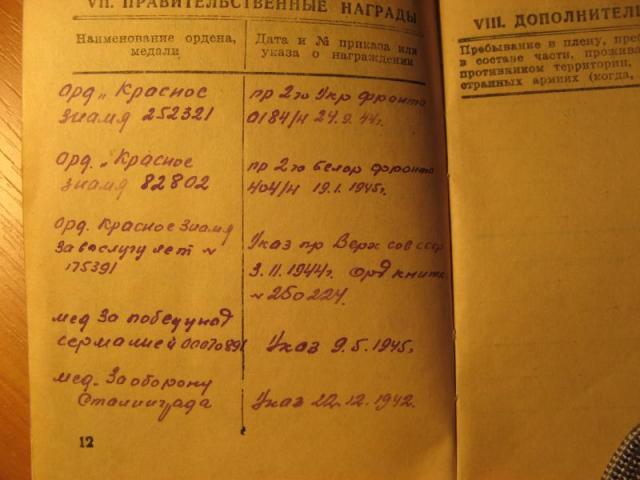 VII. ПРАВИТЕЛЬСТВЕННЫЕ НАГРАДЫ
Наименование ордена,
медали
Дата и № приказа или
указа о награждении
орд „ Красное
знамя 252321
пр 2го Укр фронта
0184/н 24.9.44г.
орд. „ Красное
знамя 82802
пр 2го белор фронта
404/н 19.1.1945г.
орд. Красное Знамя
За выслугу лет №
175391
Указ пр Верх сов ссср
3.11.1944г. орд книжк
№ 250224
мед За победу над
германией 0007089
Указ 9.5.1945г
мед. За оборону
Сталинграда
Указ 22.12.1942.
12
VIII. ДОПОЛНИТЕЛ
Пребывание в плену,
в составе части,
противником территории,
странных армиях (когда,